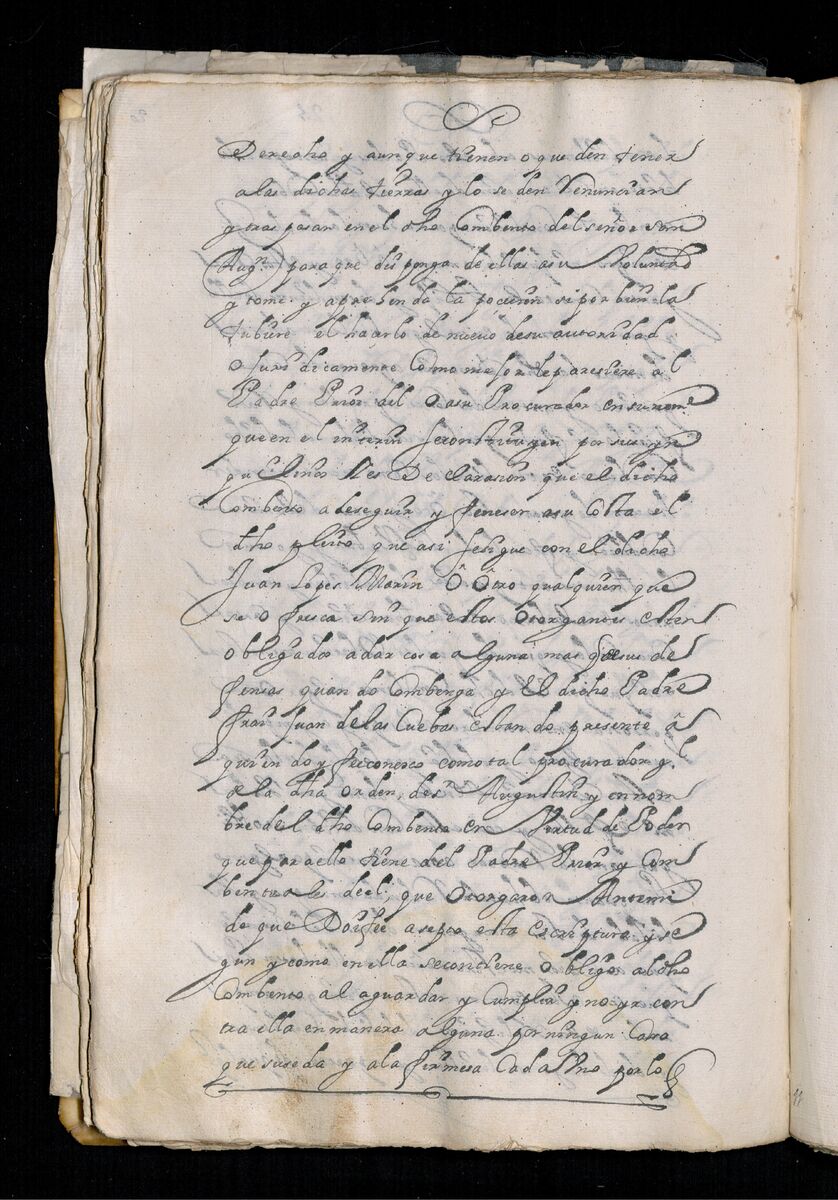 Derecho y aunque tienen o queden tener
a las dichas tierras y lo seden Renuncian
y traspasan en el dho Combento del señor san
Augn para que disponga de ellas a su Voluntad
y tome y aprehenda la poceсion si por bien la
tubiere el haçerlo de nueuo de su autoridad
o Juridicamente Como mejor le paresiere al
Padre Prior del O a su Procurador en su nome
que en el interin se constituyen por sus yn
quilinos Y es Declarasion que el dicho
Combento a de seguir y feneser a su Costa el
dho pleito que asi se sigue con el dicho
Juan Lopes Marin O Otro qualquier que
se ofresca sin que estos Otorgantes esten
obligados a dar cosa alguna mas que sus de
fensas quando Combenga y El dicho Padre
fray Juan de las Cuebas Estando presente a
quien doy fee conosco como tal procurador gl
de la dha orden de sn Augustin y en nom
bre del dho Combento en Virtud de Poder
que para ello tiene del Padre Prior y Com
bentuales de el, que Otorgaron Antemi
de que Doy fee asepto esta Escriptura y se
gun y como en ella se contiene Obligo al dho
Combento al aguardar y Cumplir y no yr con
tra ella en manera alguna por ningun Caso
que suseda y a la firmesa Cada Vno por lo